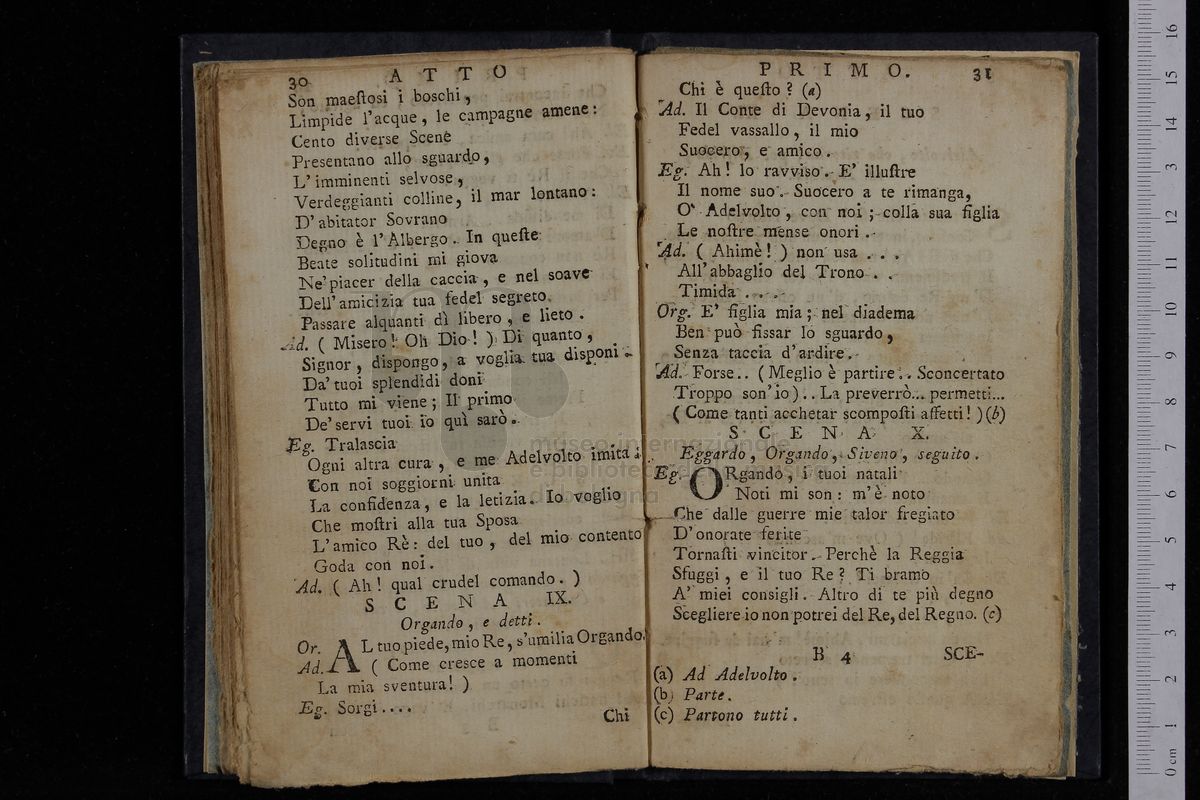 30 ATTO
Son maeſtosi i boschi,
Limpide l'acque, le campagne amene:
Cento diverse Scene
Presentano allo sguardo,
L'imminenti selvose,
Verdeggianti colline, il mar lontano:
D'abitator Sovrano
Degno è l'Albergo. In queſte
Beate solitudini mi giova
Ne'piacer della caccia, e nel soave
Dell'amicizia tua fedel segreto
Passare alquanti dì libero, e lieto.
Ad. ( Misero! Oh Dio! ) Di quanto,
Signor, dispongo, a voglia tua disponi.
Da'tuoi splendidi doni
Tutto mi viene; Il primo
De'servi tuoi io quì sarò.
Eg. Tralascia
Ogni altra cura, e me Adelvolto imita:
Con noi soggiorni unita
La confidenza, e la letizia. Io voglio
Che moſtri alla tua Sposa
L'amico Rè: del tuo, del mio contento
Goda con noi.
Ad. ( Ah! qual crudel comando. )
SCENA IX.
Orgando, e detti.
Or. AL tuo piede, mio Re, s'umilia Orgando.
Ad. ( Come cresce a momenti
La mia sventura! )
Eg. Sorgi....
Chi
PRIMO. 31
Chi è queſto? (a)
Ad. Il Conte di Devonia, il tuo
Fedel vassallo, il mio
Suocero, e amico.
Eg. Ah! lo ravviso. E' illuſtre
Il nome suo. Suocero a te rimanga,
O' Adelvolto, con noi; colla sua figlia
Le noſtre mense onori.
Ad. ( Ahimè! ) non usa . . .
All'abbaglio del Trono . .
Timida . . . .
Org. E' figlia mia; nel diadema
Ben può fissar lo sguardo,
Senza taccia d'ardire.
Ad. Forse.. (Meglio è partire.. Sconcertato
Troppo son'io).. La preverrò... permetti...
( Come tanti acchetar scompoſti affetti! ) (b)
SCENA X.
Eggardo, Orgando, Siveno, seguito.
Eg. ORgando, i tuoi natali
Noti mi son: m'è noto
Che dalle guerre mie talor fregiato
D'onorate ferite
Tornaſti vincitor. Perchè la Reggia
Sfuggi, e il tuo Re? Ti bramo
A' miei consigli. Altro di te più degno
Scegliere io non potrei del Re, del Regno. (c)
B 4 SCE-
(a) Ad Adelvolto.
(b) Parte.
(c) Partono tutti.
museo internazionale
e biblioteca della musica
di bologna
0 cm 1 2 3 4 5 6 7 8 9 10 11 12 13 14 15 16